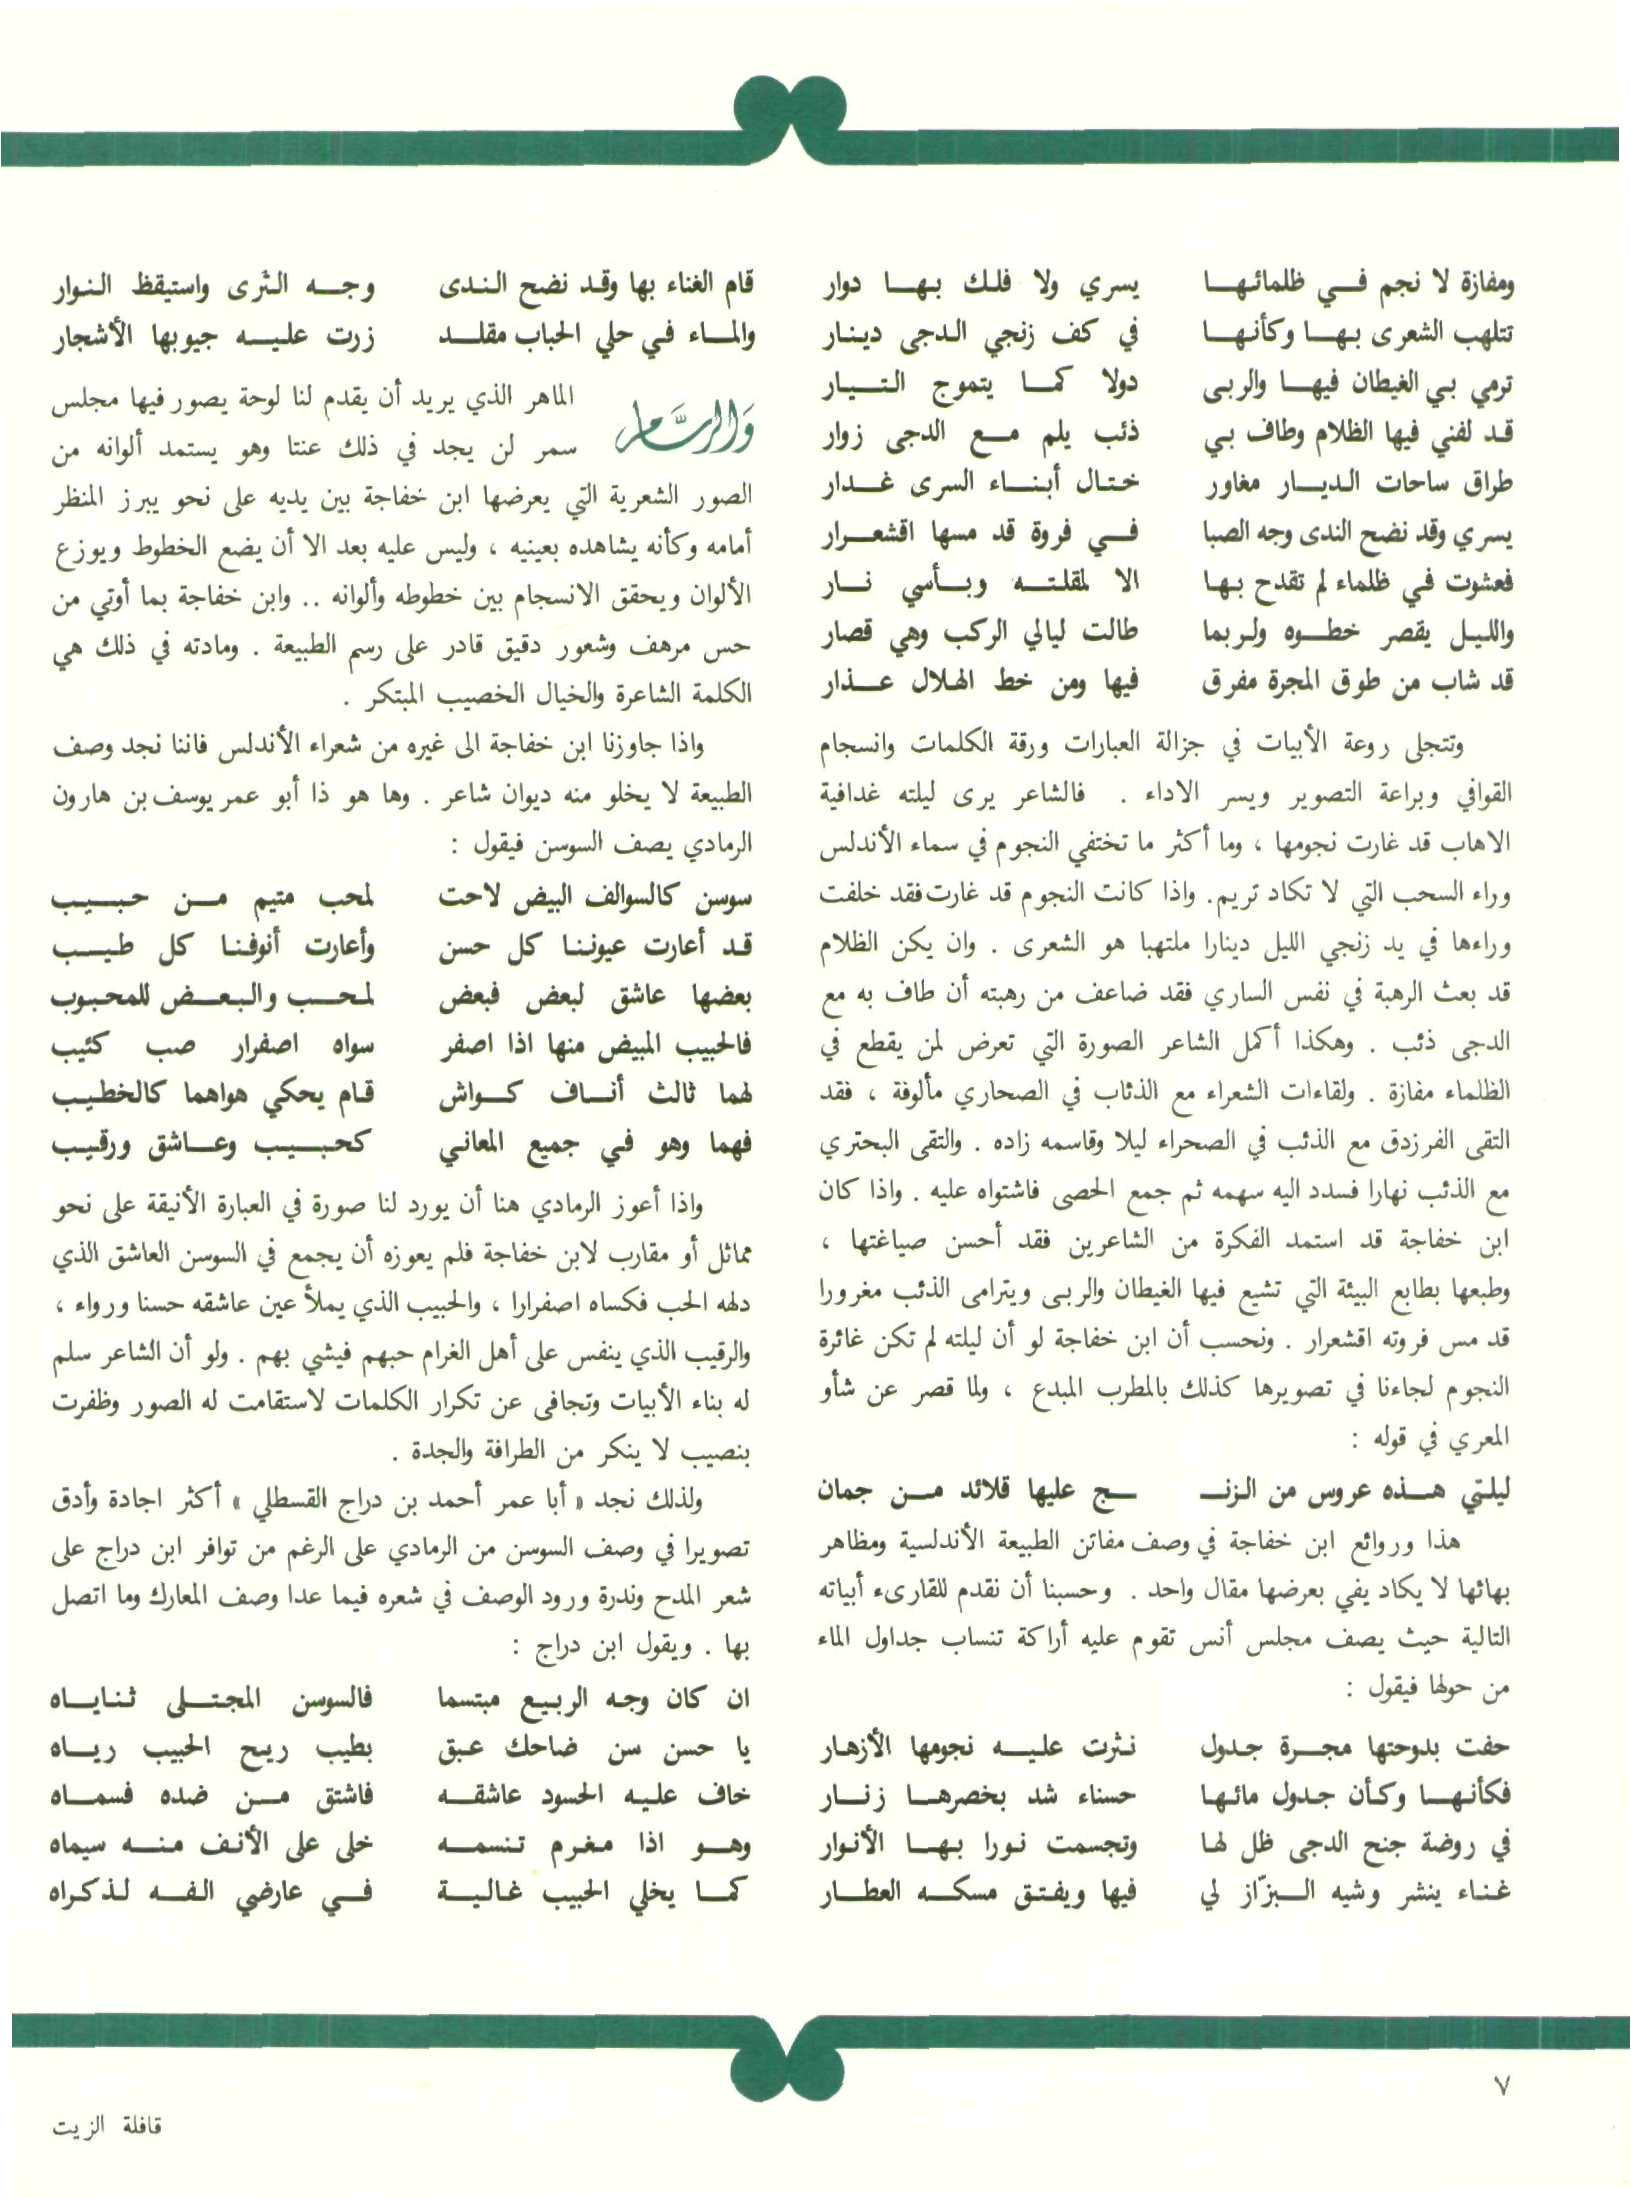 ومفازة لا نجم في ظلمائها يسري ولا فلك بها دوار
تتلهب الشعرى بها وكأنها في كف زنجي الدجى دينار
ترمي بي الغيطان فيها والربى دولا كما يتموج التيار
قد لفني فيها الظلام وطاف بي ذئب يلم مع الدجى زوار
طراق ساحات الديار مغاور ختال أبناء السرى غدار
يسري وقد نضح الندى وجه الصبا في فروة قد مسها اقشعرار
فعشوت في ظلماء لم تقدح بها الا لمقلته وبأسي نار
والليل يقصر خطوه ولربما طالت ليالي الركب وهي قصار
قد شاب من طوق المجرة مفرق فيها ومن خط الهلال عذار
وتتجلى روعة الأبيات في جزالة العبارات ورقة الكلمات وانسجام
القوافي وبراعة التصوير ويسر الاداء . فالشاعر يرى ليلته غدافية
الاهاب قد غارت نجومها ، وما أكثر ما تختفي النجوم في سماء الأندلس
وراء السحب التي لا تكاد تريم. واذا كانت النجوم قد غارت فقد خلفت
وراءها في يد زنجي الليل دينارا ملتهبا هو الشعرى . وان يكن الظلام
قد بعث الرهبة في نفس الساري فقد ضاعف من رهبته أن طاف به مع
الدجى ذئب . وهكذا أكمل الشاعر الصورة التي تعرض لمن يقطع في
الظلماء مفازة . ولقاءات الشعراء مع الذئاب في الصحاري مألوفة ، فقد
التقى الفرزدق مع الذئب في الصحراء ليلا وقاسمه زاده . والتقى البحتري
مع الذئب نهارا فسدد اليه سهمه ثم جمع الحصى فاشتواه عليه . واذا كان
ابن خفاجة قد استمد الفكرة من الشاعرين فقد أحسن صياغتها ،
وطبعها بطابع البيئة التي تشيع فيها الغيطان والربى ويترامى الذئب مغرورا
قد مس فروته اقشعرار . ونحسب أن ابن خفاجة لو أن ليلته لم تكن غائرة
النجوم لجاءنا في تصويرها كذلك بالمطرب المبدع ، ولما قصر عن شأو
المعري في قوله :
ليلتي هذه عروس من الزنـ ـج عليها قلائد من جمان
هذا وروائع ابن خفاجة في وصف مفاتن الطبيعة الأندلسية ومظاهر
بهائها لا يكاد يفي بعرضها مقال واحد . وحسبنا أن نقدم للقارىء أبياته
التالية حيث يصف مجلس أنس تقوم عليه أراكة تنساب جداول الماء
من حولها فيقول :
حفت بدوحتها مجرة جدول نثرت عليه نجومها الأزهار
فكأنها وكأن جدول مائها حسناء شد بخصرها زنار
في روضة جنح الدجى ظل لها وتجسمت نورا بها الأنوار
غناء ينشر وشيه البزّاز لي فيها ويفتق مسكه العطار
قام الغناء بها وقد نضح الندى وجه الثرى واستيقظ النوار
والماء في حلي الحباب مقلد زرت عليه جيوبها الأشجار
وَالرسَّام الماهر الذي يريد أن يقدم لنا لوحة يصور فيها مجلس
سمر لن يجد في ذلك عنتا وهو يستمد ألوانه من
الصور الشعرية التي يعرضها ابن خفاجة بين يديه على نحو يبرز المنظر
أمامه وكأنه يشاهده بعينيه ، وليس عليه بعد الا أن يضع الخطوط ويوزع
الألوان ويحقق الانسجام بين خطوطه وألوانه .. وابن خفاجة بما أوتي من
حس مرهف وشعور دقيق قادر على رسم الطبيعة . ومادته في ذلك هي
الكلمة الشاعرة والخيال الخصيب المبتكر .
واذا جاوزنا ابن خفاجة الى غيره من شعراء الأندلس فاننا نجد وصف
الطبيعة لا يخلو منه ديوان شاعر . وها هو ذا أبو عمر يوسف بن هارون
الرمادي يصف السوسن فيقول :
سوسن كالسوالف البيض لاحت لمحب متيم من حبيب
قد أعارت عيوننا كل حسن وأعارت أنوفنا كل طيب
بعضها عاشق لبعض فبعض لمحب والبعض للمحبوب
فالحبيب المبيض منها اذا اصفر سواه اصفرار صب كئيب
لهما ثالث أناف كواش قام يحكي هواهما كالخطيب
فهما وهو في جميع المعاني كحبيب وعاشق ورقيب
واذا أعوز الرمادي هنا أن يورد لنا صورة في العبارة الأنيقة على نحو
مماثل أو مقارب لابن خفاجة فلم يعوزه أن يجمع في السوسن العاشق الذي
دلهه الحب فكساه اصفرارا ، والحبيب الذي يملأ عين عاشقه حسنا ورواء ،
والرقيب الذي ينفس على أهل الغرام حبهم فيشي بهم . ولو أن الشاعر سلم
له بناء الأبيات وتجافى عن تكرار الكلمات لاستقامت له الصور وظفرت
بنصيب لا ينكر من الطرافة والجدة .
ولذلك نجد « أبا عمر أحمد بن دراج القسطلي » أكثر اجادة وأدق
تصويرا في وصف السوسن من الرمادي على الرغم من توافر ابن دراج على
شعر المدح وندرة ورود الوصف في شعره فيما عدا وصف المعارك وما اتصل
بها . ويقول ابن دراج :
ان كان وجه الربيع مبتسما فالسوسن المجتلى ثناياه
يا حسن سن ضاحك عبق بطيب ريح الحبيب رياه
خاف عليه الحسود عاشقه فاشتق من ضده فسماه
وهو اذا مغرم تنسمه خلى على الأنف منه سيماه
كما يخلي الحبيب غالية في عارضي الفه لذكراه
٧
قافلة الزيت